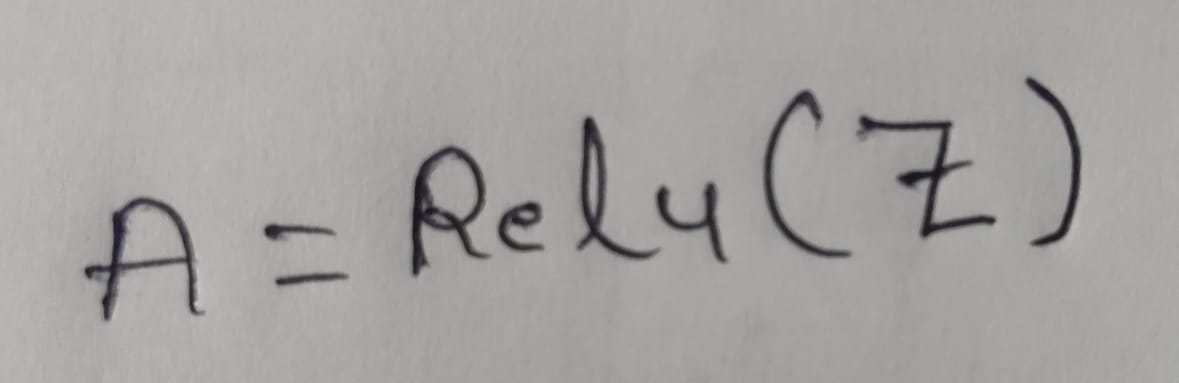 A = Relu(Z)